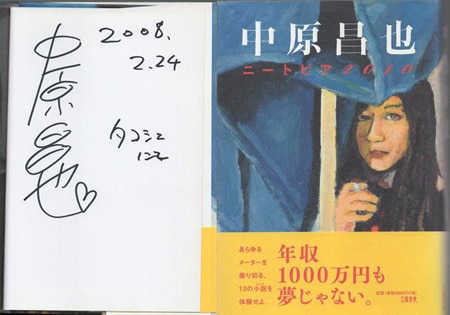 2008.
2.24
中原昌也♡
タコシェ
にて
中原昌也
ニートピア2010
あらゆる
メーターを
振り切る、
13の小説を
体験せよ。
年収
1000万円も
夢じゃない。
文藝春秋